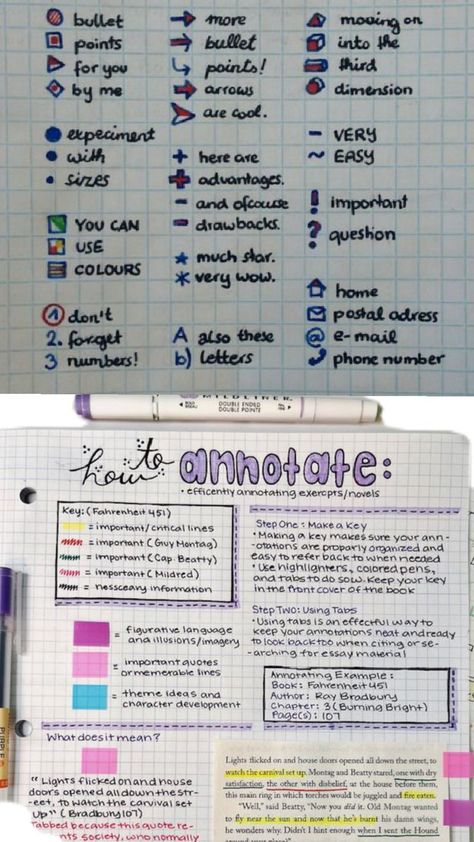 bullet
points
for you
by me
more
bullet
points!
arrows
are cool.
moving on
into the
third
dimension
expeciment
with
sizes
+ here are
+ advantages.
- and ofcourse
- drawbacks.
- VERY
~ EASY
! important
? question
YOU CAN
USE
COLOURS
* much star.
* very wow.
home
postal adress
@ e-mail
phone number
1 don't
2. forget
3 numbers!
A also these
b) letters
MILDLINER
DOUBLE ENDED
DOUBLE POINTE
how to annotate:
• efficently annotating exercpts/novels
Key: (Fahrenheit 451)
= important/critical lines
= important (Guy Montag)
= important (Cap. Beatty)
= important (Mildred)
= nessceary information
Step One: Make a Key
• Making a key makes sure your ann-
otations are properly organized and
easy to refer back to when needed
• Use highlighters, colored pens,
and tabs to do sow. Keep your key
in the front cover of the book
Step Two: Using Tabs
• Using tabs is an effectful way to
keep your annotations neat and ready
to look back too when citing or se-
arching for essay material
= figurative language
and illusions/imagery
= important quotes
or memerable lines
= theme ideas and
character development
Annotating Example:
Book: Fahrenheit 451
Author: Ray Bradbury
Chapter: 3 (Burning Bright)
Page(s): 107
What does it mean?
"Lights flicked on and house
doors opened all down the str-
eet, to watch the carvival set
up" (Bradbury 107)
Tabbed because this quote re-
nts society, who normally
Lights flicked on and house doors opened all down the street, to
watch the carnival set up. Montag and Beatty stared, one with dry
satisfaction, the other with disbelief, at the house before them,
this main ring in which torches would be juggled and fire eaten.
"Well," said Beatty, "Now you did it. Old Montag wanted
to fly near the sun and now that he's burnt his damn wings,
he wonders why. Didn't I hint enough when I sent the Hound
around your place?"
PURPLE